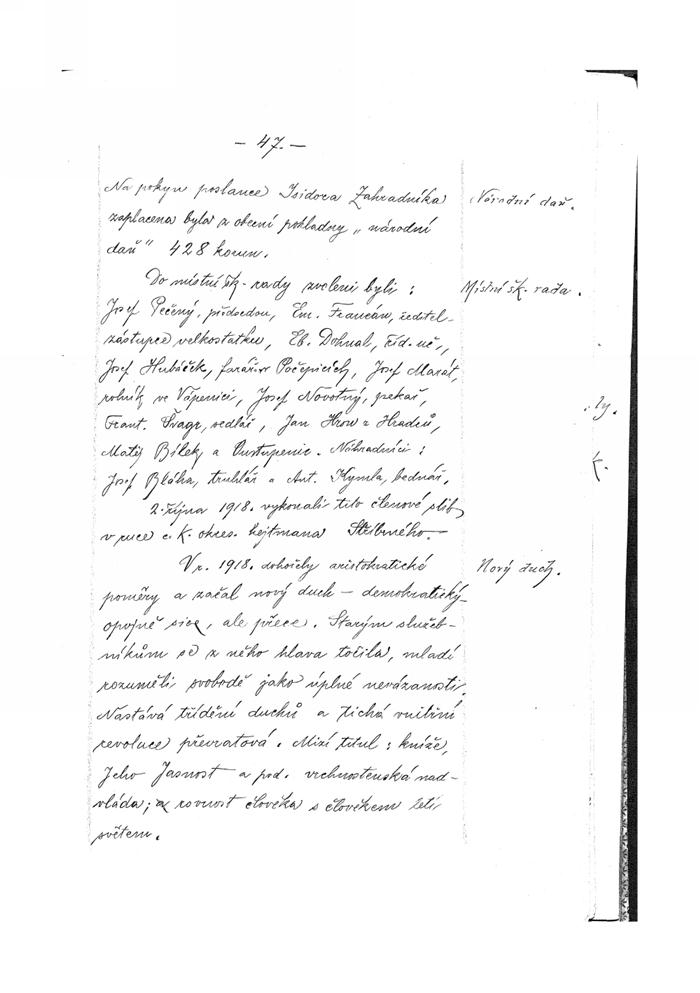 — 47. —
Na pokyn poslance Isidora Zahradníka
Národní daň.
zaplacena byla z obecní pokladny „národní
daň" 428 korun.
Do místní šk. rady zvoleni byli:
Místní šk. rada.
Josef Pečený, předsedou, Em. Francán, ředitel-
zástupce velkostatku, Eb. Dohnal, říd. uč.,
Josef Hubáček, farář v Počepicích, Josef Marát,
rolník ve Vápenici, Josef Novotný, pekař,
Frant. Švagr, sedlář, Jan Hrow z Hradců,
ly.
Matěj Bílek z Oustupenic. Náhradníci:
k.
Josef Bláha, truhlář a Ant. Kymla, bednář.
2. října 1918. vykonali tito členové slib
v ruce c. k. okres. hejtmana Stříbrného.
V r. 1918. dohořely aristokratické
Nový duch.
poměry a začal nový duch — demokratický
opojně sice, ale přece. Starým služeb-
níkům se z něho hlava točila, mladí
rozuměli svobodě jako úplné nevázanosti.
Nastává třídění duchů a tichá vnitřní
revoluce převratová. Mizí titul: kníže,
Jeho Jasnost a pod. vrchnostenská nad-
vláda; a rovnost člověka s člověkem letí
světem.